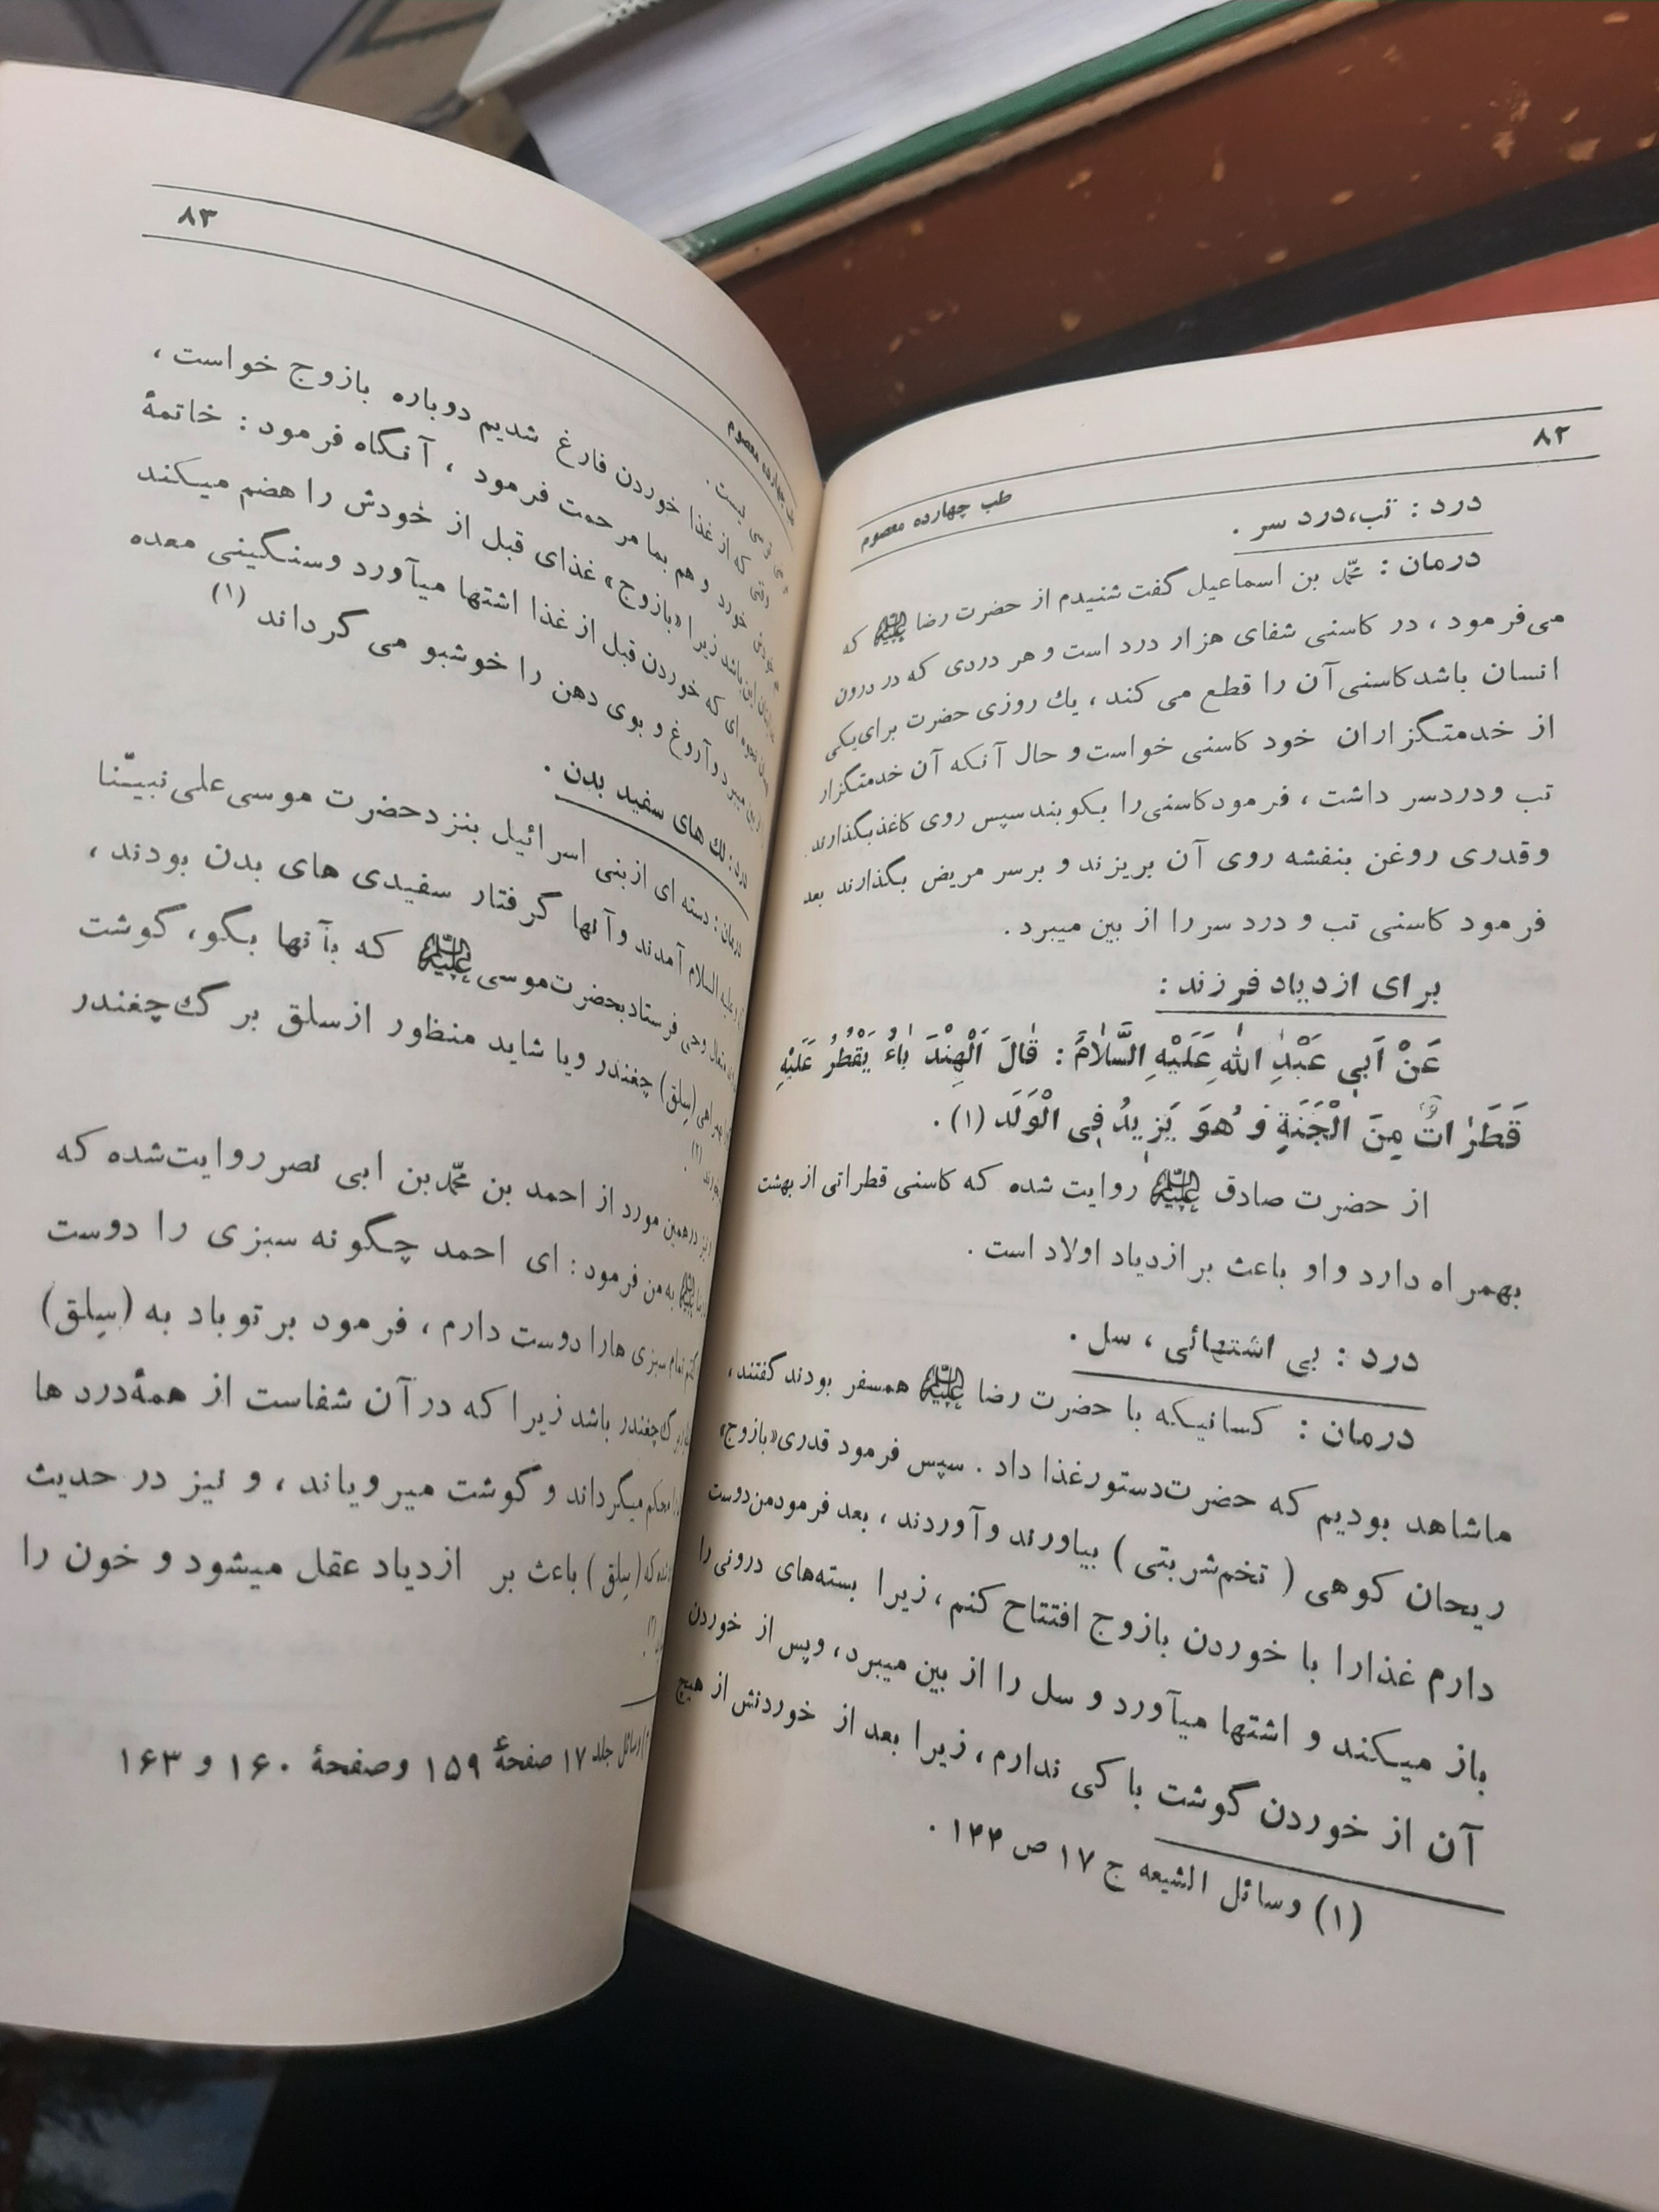 ۸۲
طب چهارده معصوم
درد : تب،درد سر .
درمان : محمّد بن اسماعیل گفت شنیدم از حضرت رضا علیه‌السلام که
می‌فرمود ، در کاسنی شفای هزار درد است و هر دردی که در درون
انسان باشد کاسنی آن را قطع می کند ، یك روزی حضرت برای یکی
از خدمتگزاران خود کاسنی خواست و حال آنکه آن خدمتگزار
تب ودردسر داشت ، فرمود کاسنی را بکوبند سپس روی کاغذ بگذارند
وقدری روغن بنفشه روی آن بریزند و برسر مریض بگذارند بعد
فرمود کاسنی تب و درد سر را از بین میبرد .
برای ازدیاد فرزند :
عَنْ اَبی عَبْدِ اللهِ عَلَیْهِ السَّلامُ : قالَ اَلْهِنْدَ باءُ یَقْطُرُ عَلَیْهِ
قَطَراتٌ مِنَ الْجَنَةِ وَ هُوَ یَزیدُ فِی الْوَلَد (۱) .
از حضرت صادق علیه‌السلام روایت شده که کاسنی قطراتی از بهشت
بهمراه دارد واو باعث بر ازدیاد اولاد است .
درد : بی اشتهائی ، سل .
درمان : کسانیکه با حضرت رضا علیه‌السلام همسفر بودند گفتند ،
ماشاهد بودیم که حضرت‌دستورغذا داد . سپس فرمود قدری «بازوج»
ریحان کوهی ( تخم‌شربتی ) بیاورند و آوردند ، بعد فرمودمن‌دوست
دارم غذارا با خوردن بازوج افتتاح کنم ، زیرا بسته‌های درونی را
باز میکند و اشتها میآورد و سل را از بین میبرد ، وپس از خوردن
آن از خوردن گوشت باکی ندارم ، زیرا بعد از خوردنش از هیچ
(۱) وسائل الشیعه ج ۱۷ ص ۱۴۴ .
۸۳
چهارده معصوم
نیست .
که از غذا خوردن فارغ شدیم دوباره بازوج خواست ،
خورد و هم بما مرحمت فرمود ، آنگاه فرمود : خاتمهٔ
باشد زیرا «بازوج» غذای قبل از خودش را هضم میکند
که خوردن قبل از غذا اشتها میآورد وسنگینی معده
میبرد و آروغ و بوی دهن را خوشبو می گرداند (۱)
درد : لك های سفید بدن .
درمان : دسته ای ازبنی اسرائیل بنزدحضرت موسی علی نبیّنا
علیه السلام آمدند و آنها گرفتار سفیدی های بدن بودند ،
وحی فرستاد بحضرت‌موسی علیه‌السلام که بآنها بگو ، گوشت
(سِلق) چغندر ویا شاید منظور ازسلق برگ‌چغندر
(۲) .
درهمین مورد از احمد بن محمّدبن ابی نصر روایت‌شده که
علیه‌السلام به من فرمود : ای احمد چگونه سبزی را دوست
تمام سبزی هارا دوست دارم ، فرمود بر تو باد به (سِلق)
برگ‌چغندر باشد زیرا که در آن شفاست از همهٔ‌درد ها
محکم میگرداند و گوشت میرویاند ، و نیز در حدیث
که (سِلق) باعث بر ازدیاد عقل میشود و خون را
وسائل جلد ۱۷ صفحهٔ ۱۵۹ وصفحهٔ ۱۶۰ و ۱۶۳